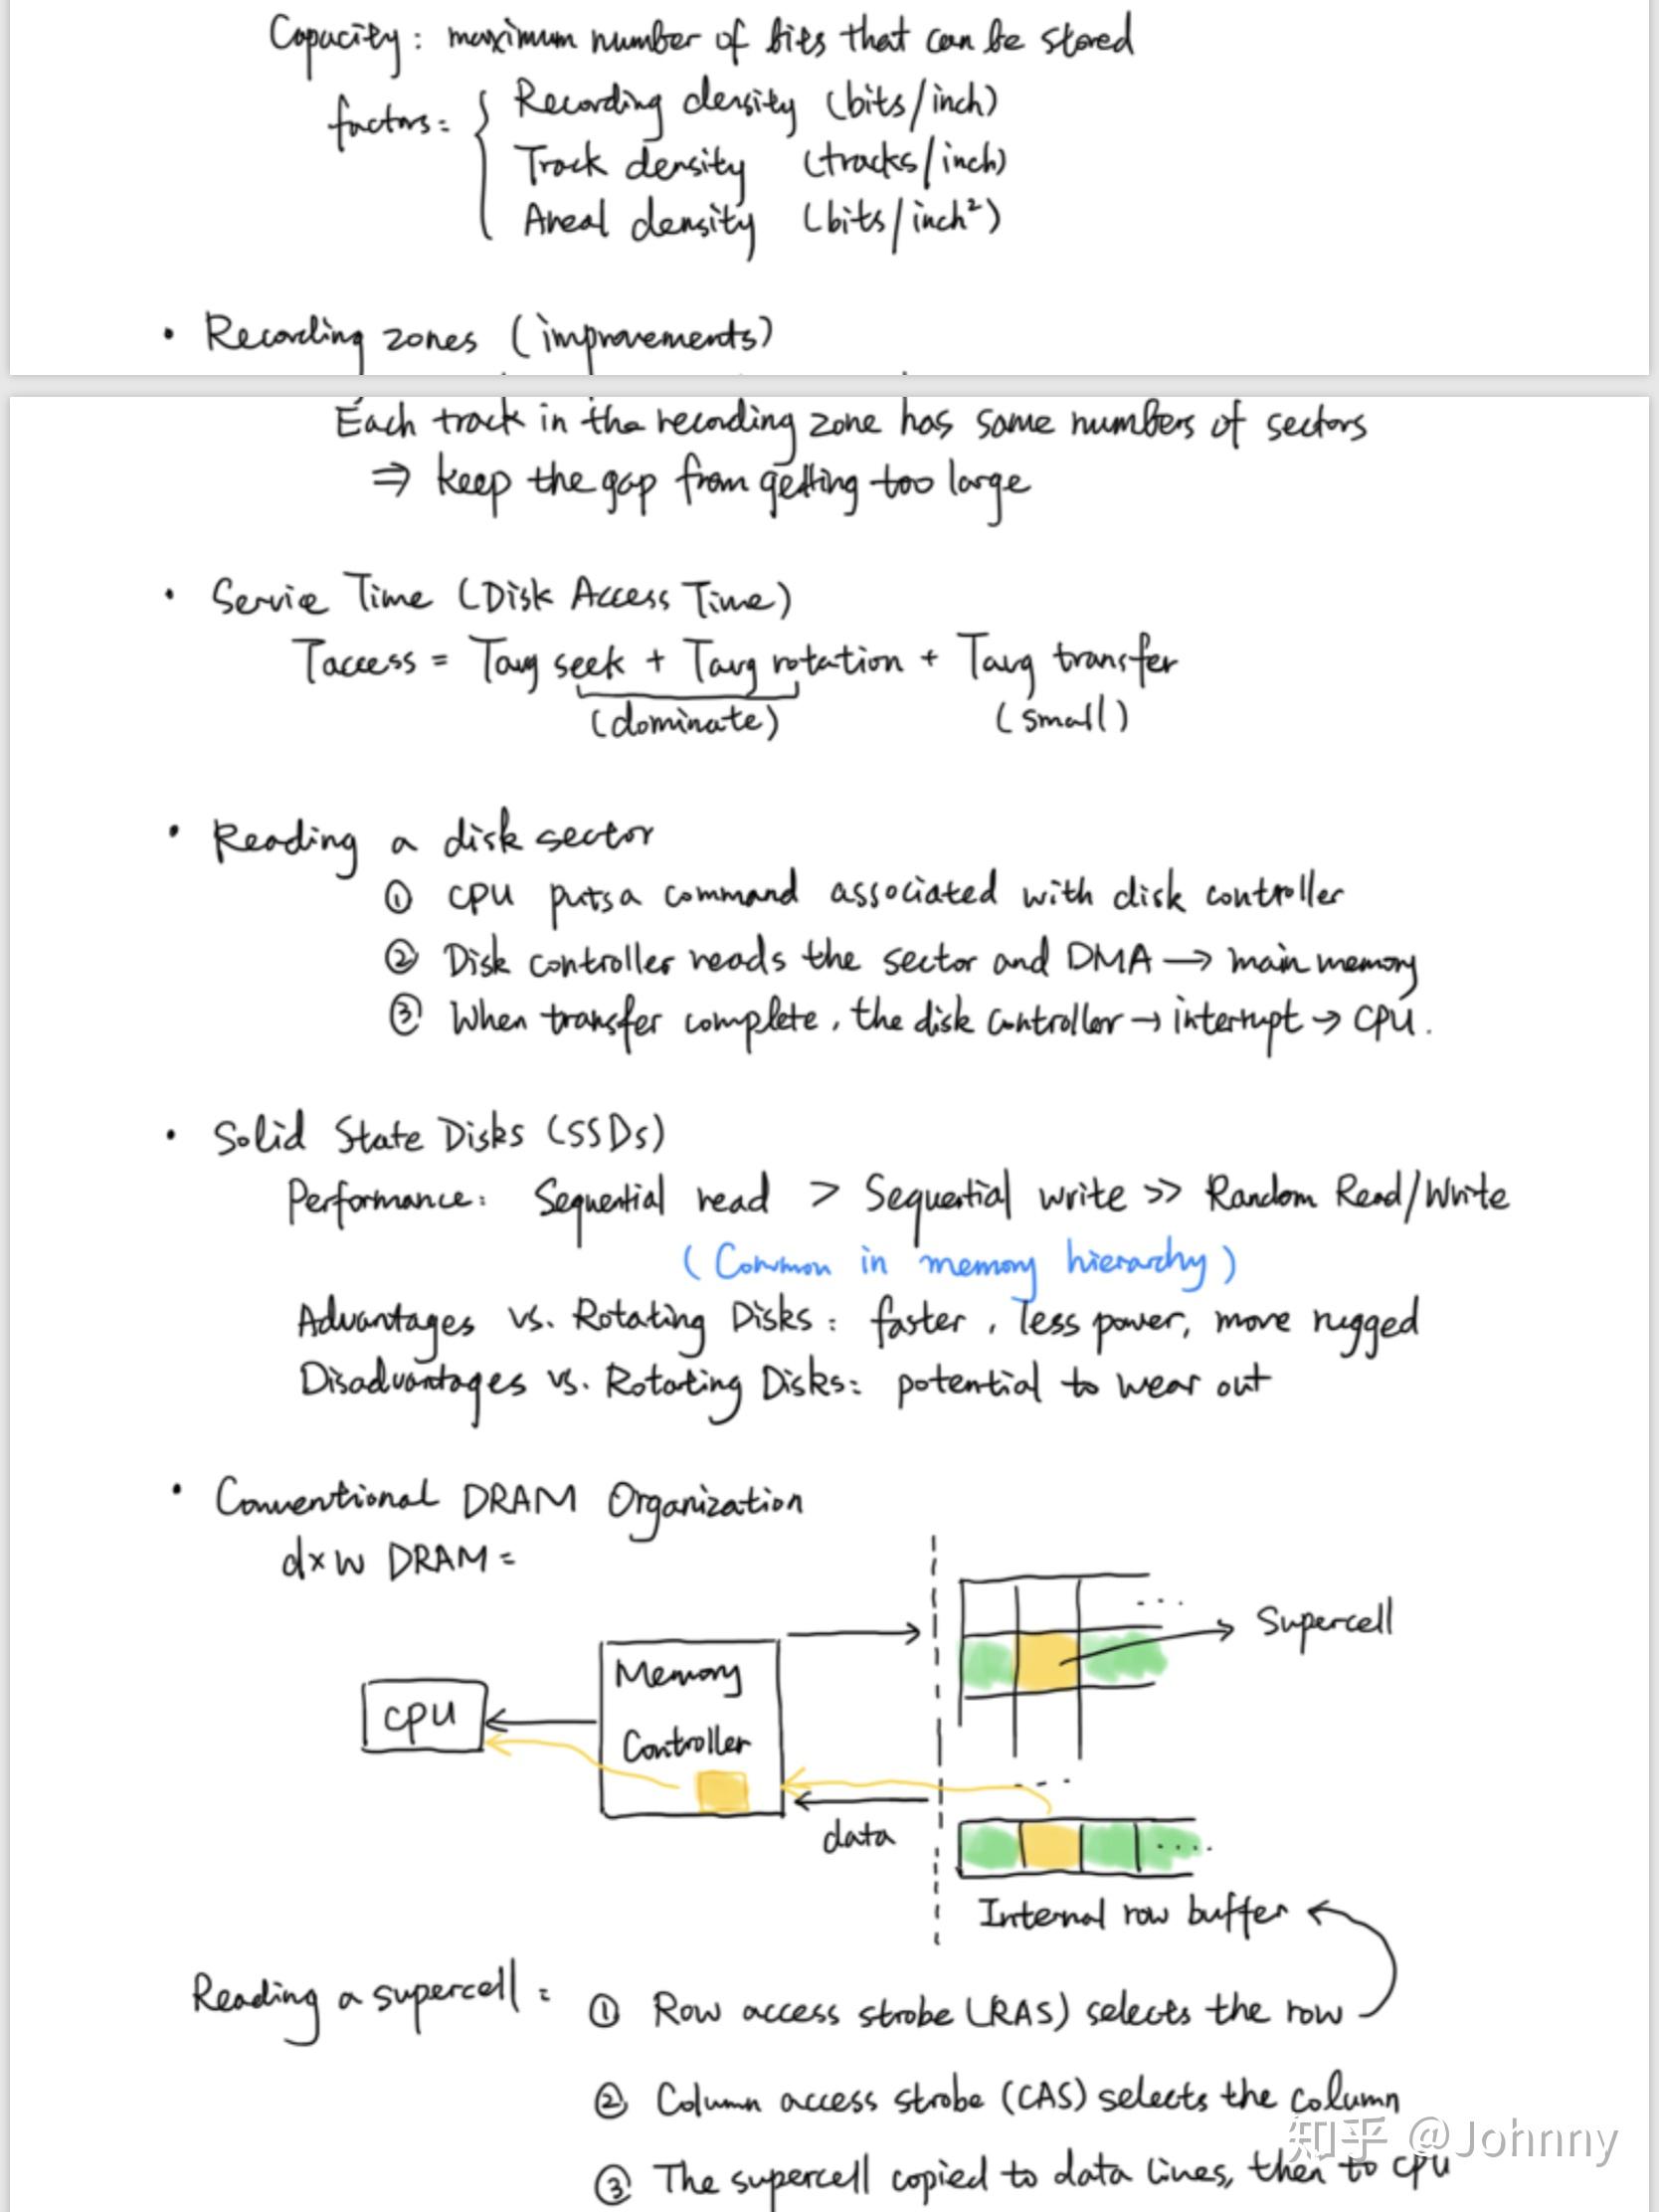 Capacity: maximum number of bits that can be stored
factors: Recording density (bits/inch)
Track density (tracks/inch)
Areal density (bits/inch²)
• Recording zones (improvements)
Each track in the recording zone has same numbers of sectors
⇒ keep the gap from getting too large
• Service Time (Disk Access Time)
Taccess = Tavg seek + Tavg rotation + Tavg transfer
(dominate) (small)
• Reading a disk sector
① CPU puts a command associated with disk controller
② Disk controller reads the sector and DMA → main memory
③ When transfer complete, the disk controller → interrupt → CPU.
• Solid State Disks (SSDs)
Performance: Sequential read > Sequential write >> Random Read/Write
(Common in memory hierarchy)
Advantages vs. Rotating Disks: faster, less power, more rugged
Disadvantages vs. Rotating Disks: potential to wear out
• Conventional DRAM Organization
d×w DRAM:
...
Supercell
Memory
CPU
Controller
...
data
....
Internal row buffer
Reading a supercell: ① Row access strobe (RAS) selects the row
② Column access strobe (CAS) selects the column
③ The supercell copied to data lines, then to CPU
知乎 @Johnny